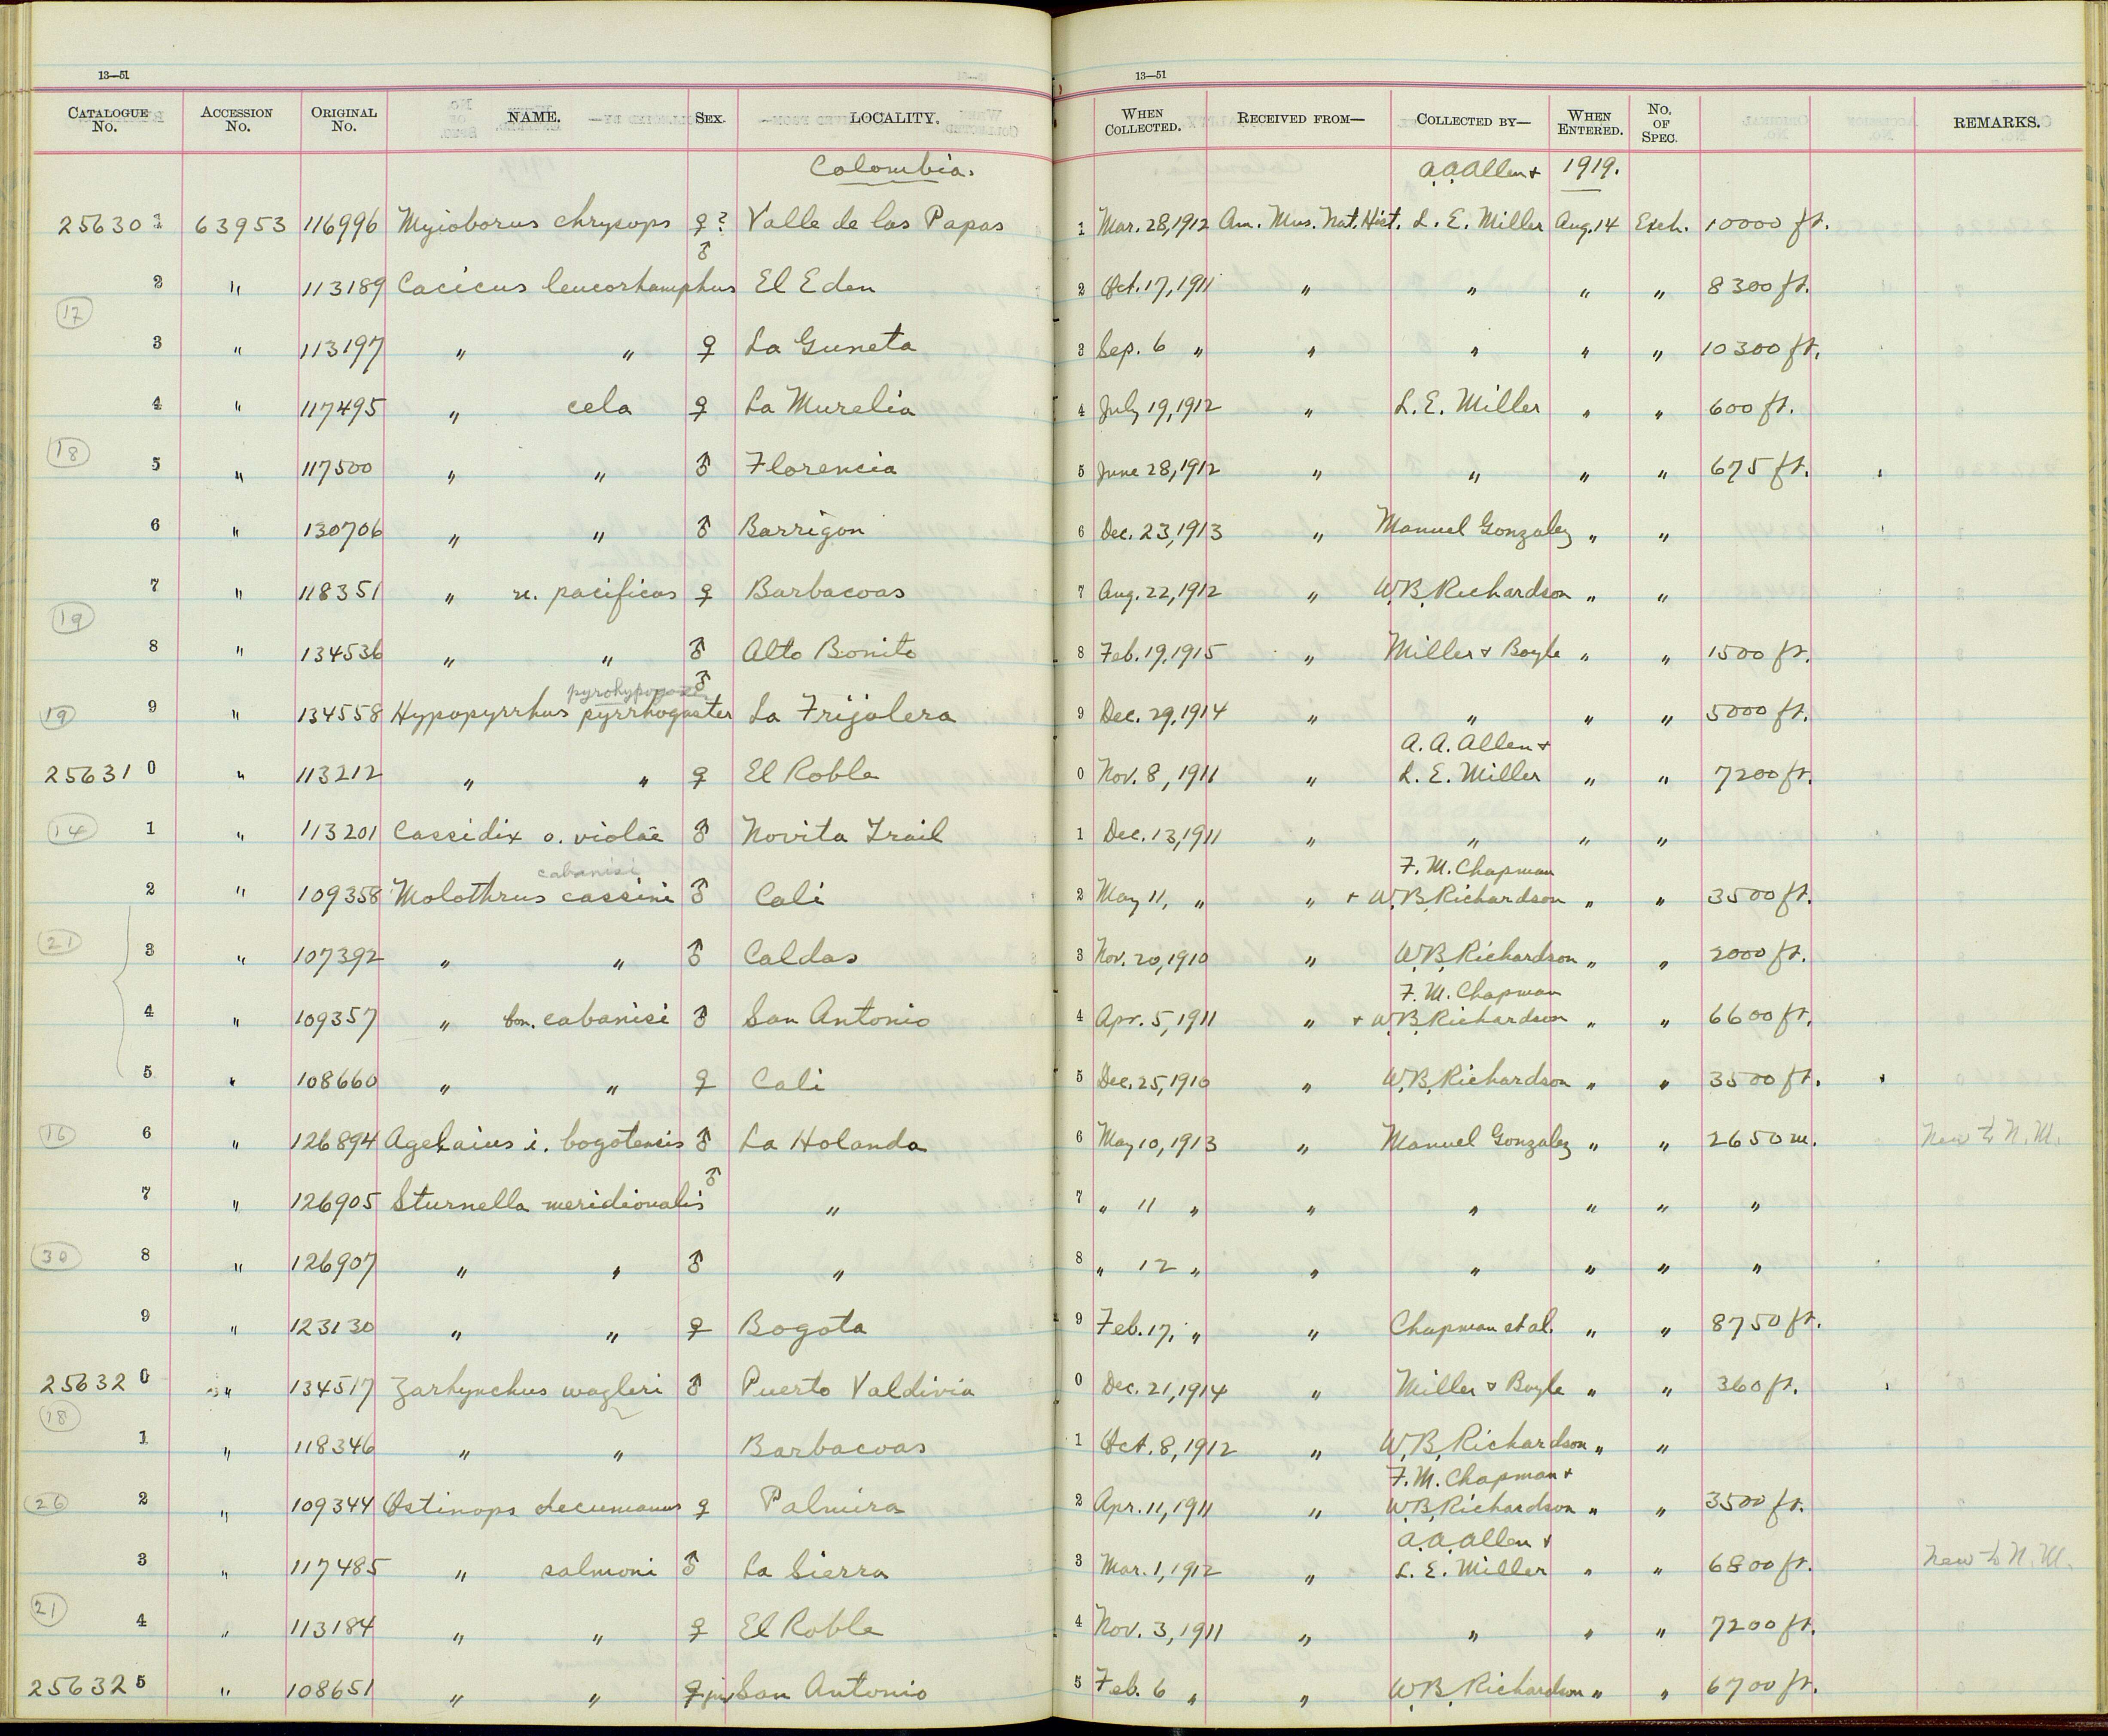 13—51
13—51
CATALOGUE No. ACCESSION No. ORIGINAL No. NAME. SEX. LOCALITY. WHEN COLLECTED. RECEIVED FROM— COLLECTED BY— WHEN ENTERED. No. OF SPEC. REMARKS.
Colombia. A.A. Allen + 1919.
256301 63953 116996 Myioborus chrysops ♀? Valle de las Papas 1 Mar. 28, 1912 Am. Mus. Nat. Hist. L. E. Miller Aug. 14 Exch. 10000 ft.
2 " 113189 Cacicus leucorhamphus ♂ El Eden 2 Oct. 17, 1911 " " " " 8300 ft.
17
3 " 113197 " " ♀ La Guneta 3 Sep. 6 " " " " " 10300 ft.
4 " 117495 " cela ♀ La Murelia 4 July 19, 1912 " L. E. Miller " " 600 ft.
18
5 " 117500 " " ♂ Florencia 5 June 28, 1912 " " " " 675 ft.
6 " 130706 " " ♂ Barrigon 6 Dec. 23, 1913 " Manuel Gonzalez " "
7 " 118351 " u. pacificus ♀ Barbacoas 7 Aug. 22, 1912 " W.B. Richardson " "
19
8 " 134536 " " ♂ Alto Bonito 8 Feb. 19, 1915 " Miller & Boyle " " 1500 ft.
19 9 " 134558 Hypopyrrhus pyrrhogaster ♂ La Frijolera 9 Dec. 29, 1914 " " " " 5000 ft.
A. A. Allen +
256310 " 113212 " " ♀ El Roble 0 Nov. 8, 1911 " L. E. Miller " " 7200 ft.
14 1 " 113201 Cassidix o. violae ♂ Novita Trail 1 Dec. 13, 1911 " " " "
cabanisi F. M. Chapman
2 " 109358 Molothrus cassini ♂ Cali 2 May 11, " " + W.B. Richardson " " 3500 ft.
21 3 " 107392 " " ♂ Caldas 3 Nov. 20, 1910 " W.B. Richardson " " 2000 ft.
F. M. Chapman
4 " 109357 " bon. cabanisi ♂ San Antonio 4 Apr. 5, 1911 " + W.B. Richardson " " 6600 ft.
5 " 108660 " " ♀ Cali 5 Dec. 25, 1910 " W.B. Richardson " " 3500 ft.
16 6 " 126894 Agelaius i. bogotensis ♂ La Holanda 6 May 10, 1913 " Manuel Gonzalez " " 2650 m. New to N. M.
7 " 126905 Sturnella meridionalis ♂ " 7 " 11 " " " " " "
30 8 " 126907 " " ♂ " 8 " 12 " " " " " "
9 " 123130 " " ♀ Bogota 9 Feb. 17, " " Chapman et al. " " 8750 ft.
256320 " 134517 Zarhynchus wagleri ♂ Puerto Valdivia 0 Dec. 21, 1914 " Miller & Boyle " " 360 ft.
18
1 " 118346 " " Barbacoas 1 Oct. 8, 1912 " W.B. Richardson " "
F. M. Chapman +
26 2 " 109344 Ostinops decumanus ♀ Palmira 2 Apr. 11, 1911 " W.B. Richardson " " 3500 ft.
A.A. Allen +
3 " 117485 " salmoni ♂ La Sierra 3 Mar. 1, 1912 " L. E. Miller " " 6800 ft. New to N. M.
21
4 " 113184 " " ♀ El Roble 4 Nov. 3, 1911 " " " " 7200 ft.
256325 " 108651 " " ♀ juv San Antonio 5 Feb. 6 " " W.B. Richardson " " 6700 ft.